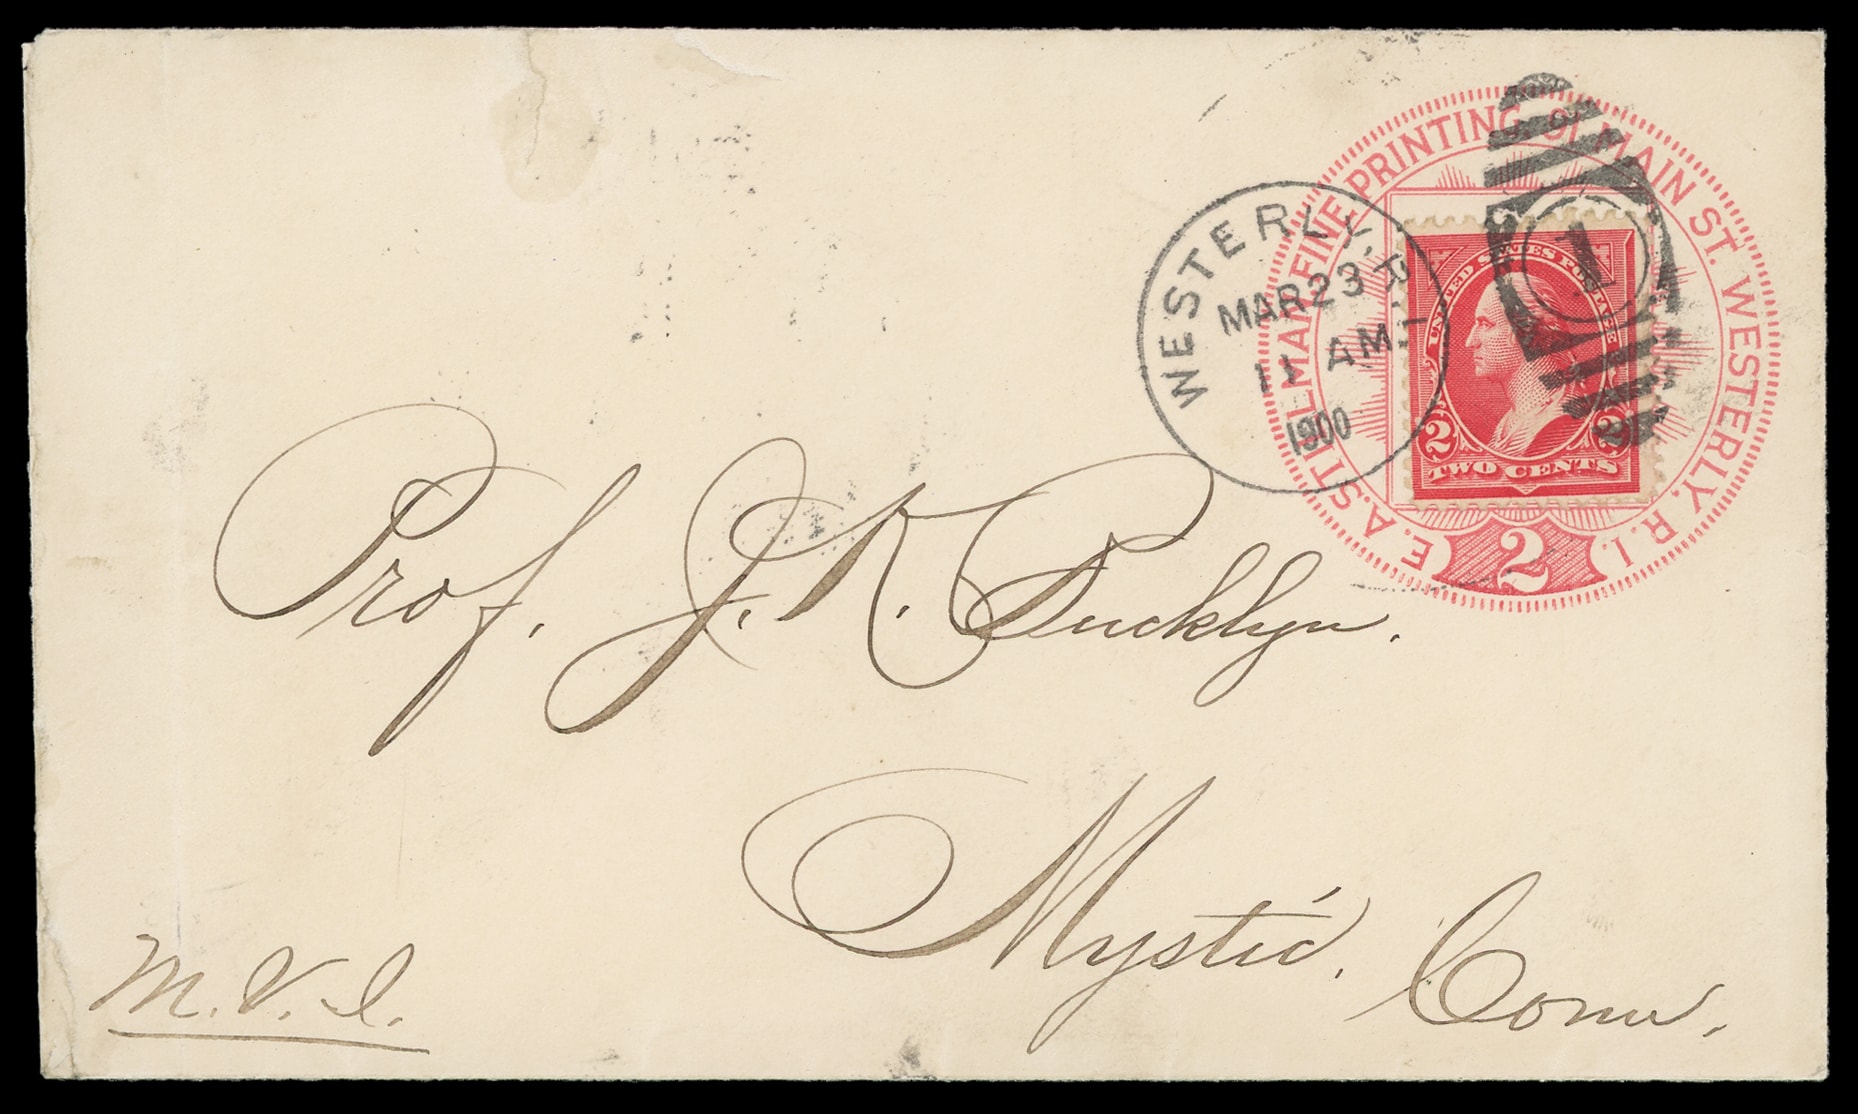 E. A. STILLMAN FINE PRINTING, 91 MAIN ST. WESTERLY, R. I.
2
WESTERLY, R.I.
MAR 23
11 AM
1900
1
UNITED STATES POSTAGE
2 2
TWO CENTS
Prof. J. K. Bucklyn.
Mystic, Conn.
M. V. I.